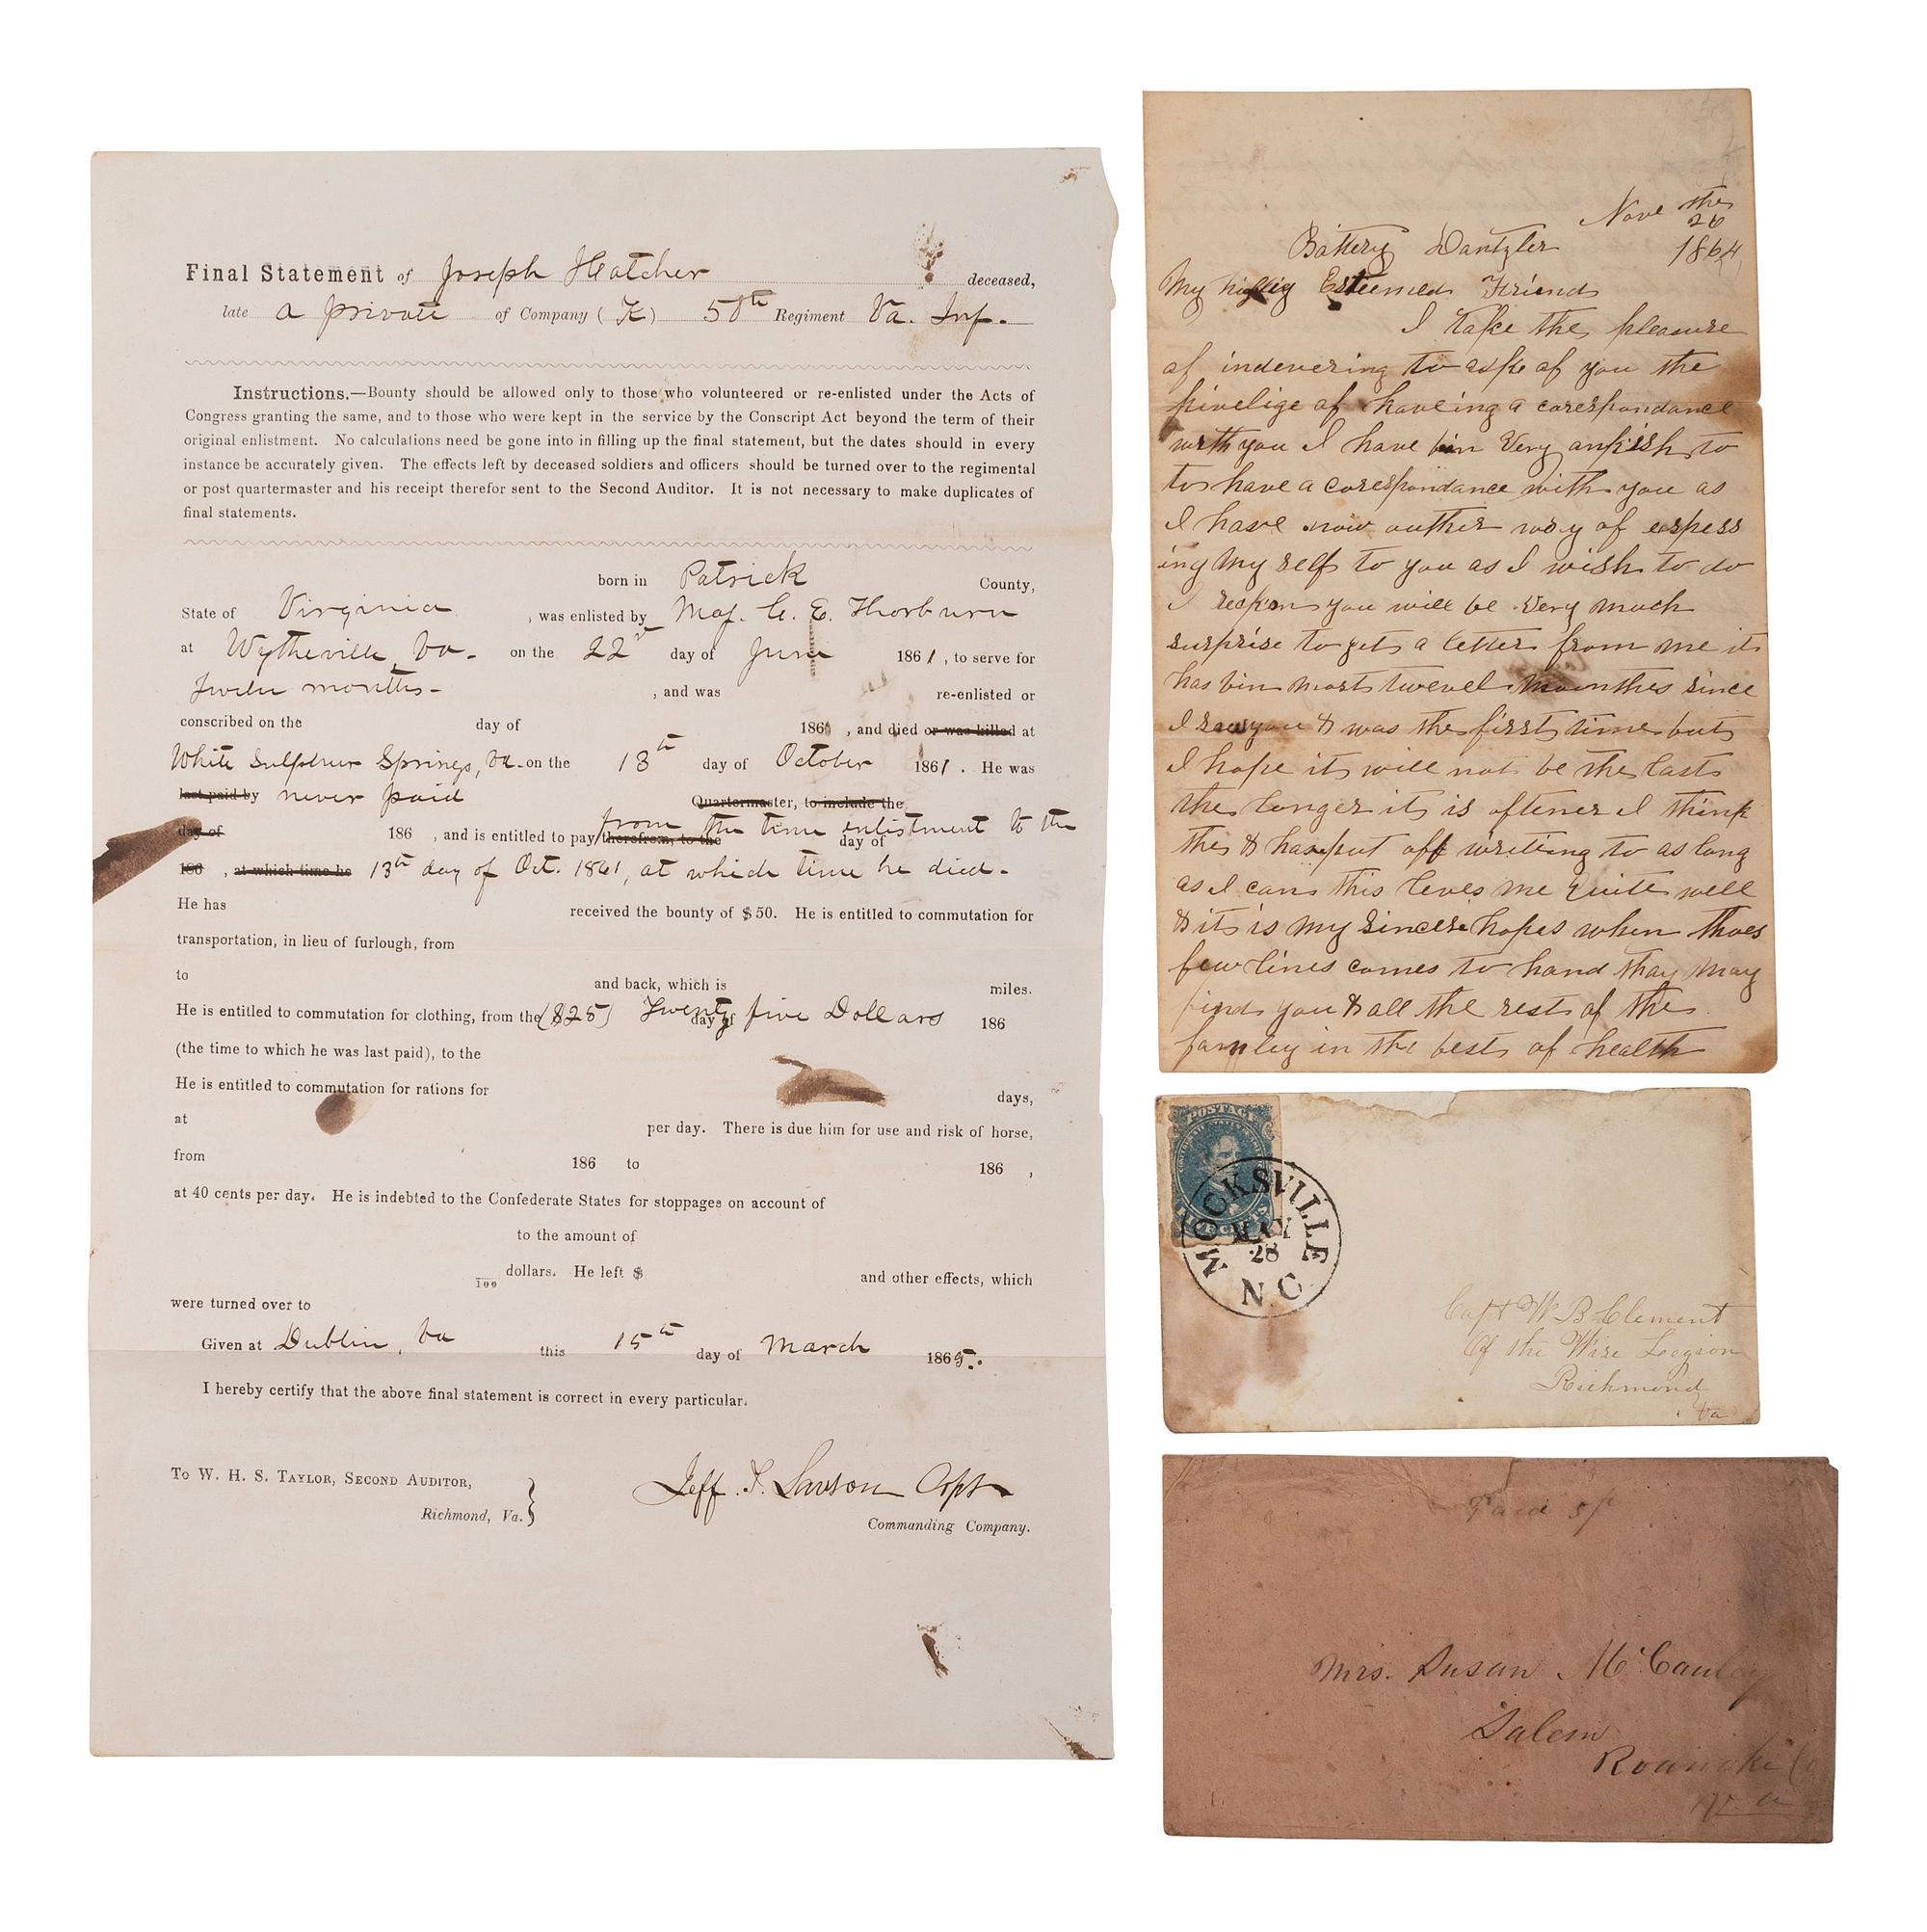 Final Statement of Joseph Hatcher deceased,
late a private of Company (K) 50th Regiment Va. Inf.
Instructions.—Bounty should be allowed only to those who volunteered or re-enlisted under the Acts of
Congress granting the same, and to those who were kept in the service by the Conscript Act beyond the term of their
original enlistment. No calculations need be gone into in filling up the final statement, but the dates should in every
instance be accurately given. The effects left by deceased soldiers and officers should be turned over to the regimental
or post quartermaster and his receipt therefor sent to the Second Auditor. It is not necessary to make duplicates of
final statements.
born in Patrick County,
State of Virginia , was enlisted by Maj. C. E. Thorburn
at Wytheville, Va. on the 22nd day of June 1861, to serve for
Twelve months- , and was re-enlisted or
conscribed on the day of 186 , and died or was killed at
White Sulphur Springs, Va. on the 13th day of October 1861. He was
last paid by never paid Quartermaster, to include the
day of 186 , and is entitled to pay therefrom, to the from the time enlistment to the day of
186 , at which time he 13th day of Oct. 1861, at which time he died.
He has received the bounty of $50. He is entitled to commutation for
transportation, in lieu of furlough, from
to and back, which is miles.
He is entitled to commutation for clothing, from the ($25) Twenty five Dollars day of 186
(the time to which he was last paid), to the
He is entitled to commutation for rations for days,
at per day. There is due him for use and risk of horse,
from 186 to 186 ,
at 40 cents per day. He is indebted to the Confederate States for stoppages on account of
to the amount of
100 dollars. He left $ and other effects, which
were turned over to
Given at Dublin, Va this 15th day of March 1865.
I hereby certify that the above final statement is correct in every particular.
To W. H. S. Taylor, Second Auditor,
Richmond, Va. }
Jeff. T. Lawson Capt
Commanding Company.
Nove the
26
Battery Dantzler 1864
My highly Esteemed Friend
I take the pleasure
of indevering to aske of you the
privelige of haveing a corespondance
with you I have bin Very ankish to
to have a corespondance with you as
I have now outher way of express
ing my self to you as I wish to do
I reckon you will be Very much
surprise to get a letter from me it
has bin most twevel moonthes since
I saw you & was the first time but
I hope it will not be the last
the longer it is oftener I think
the & has put off writting to as long
as I can this leves me quite well
& it is my sincere hopes when thoes
few lines comes to hand thay may
find you & all the rest of the
famley in the best of health
POSTAGE
FIVE CENTS
MOCKSVILLE
MAY
28
N C
Capt W. B Clement
Of the Wise Legion
Richmond
Va
Paid 5/
Mrs. Susan McCauley
Salem
Roanoke Co
Va